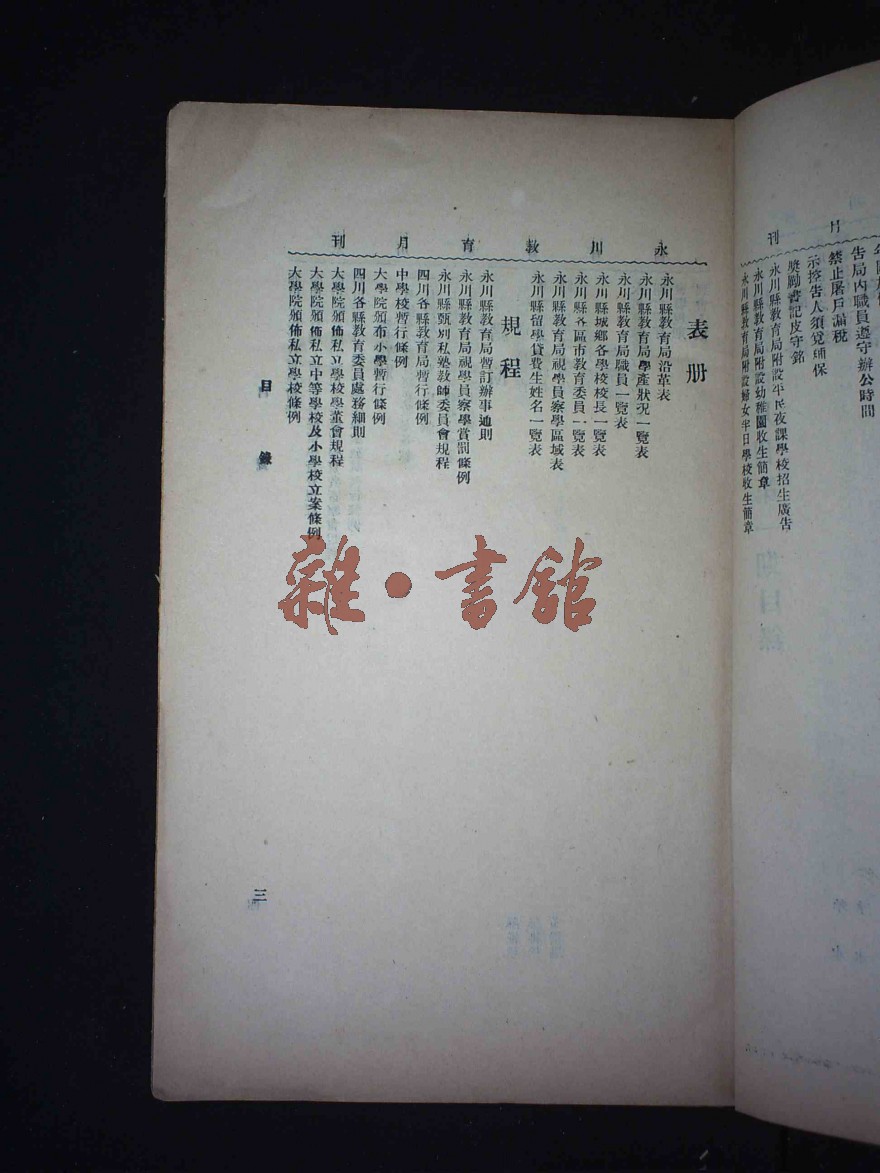 刊
告局內職員遵守辦公時間
禁止屠戶漏稅
示控告人須覓鋪保
獎勵書記皮守銘
永川縣教育局附設平民夜課學校招生廣告
永川縣教育局附設幼稚園收生簡章
永川縣教育局附設婦女半日學校收生簡章
永川教育月刊
表册
永川縣教育局沿革表
永川縣教育局學產狀況一覽表
永川縣教育局職員一覽表
永川縣城鄉各學校校長一覽表
永川縣各區市教育委員一覽表
永川縣教育局視學員察學區域表
永川縣留學貸費生姓名一覽表
規程
永川縣教育局暫訂辦事通則
永川縣教育局視學員察學賞罰條例
永川縣甄別私塾教師委員會規程
四川各縣教育局暫行條例
中學校暫行條例
大學院頒布小學暫行條例
四川各縣教育委員處務細則
大學院頒佈私立學校學董會規程
大學院頒佈私立中等學校及小學校立案條例
大學院頒佈私立學校條例
目錄
三
雜·書館